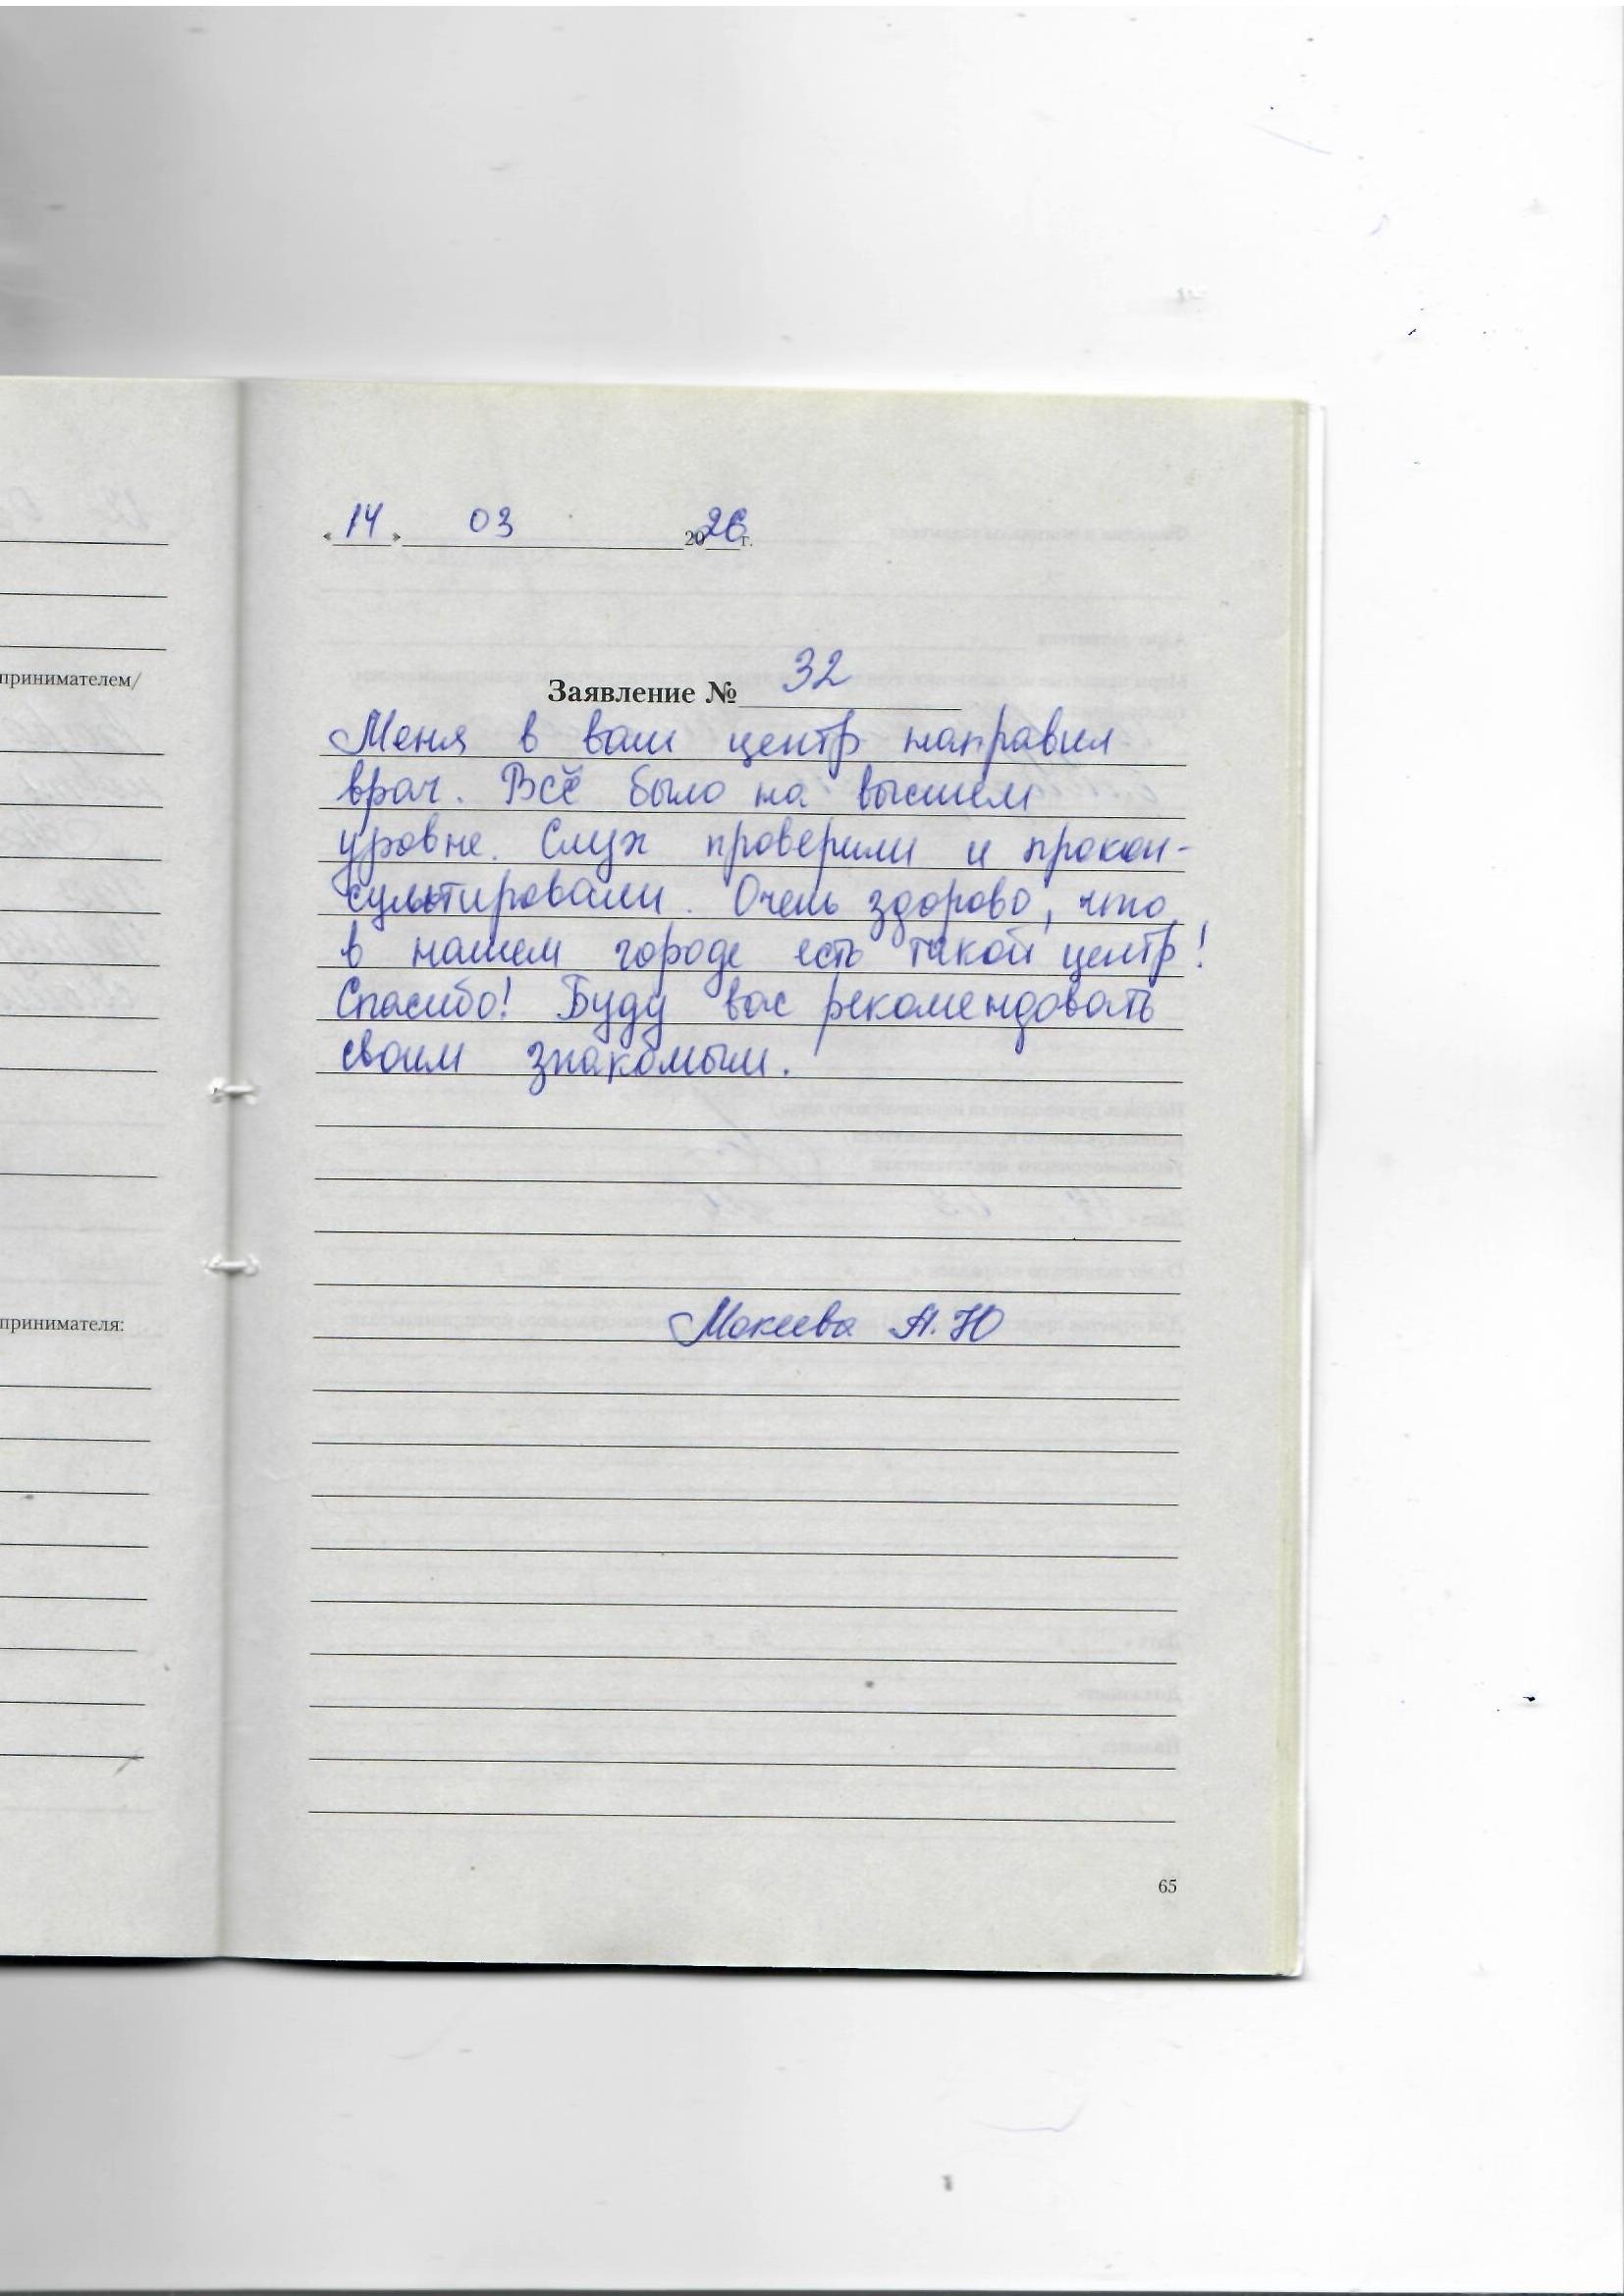 принимателем/
принимателя:
«14» 03 2026г.
Заявление № 32
Меня в ваш центр направил
врач. Всё было на высшем
уровне. Слух проверили и прокон-
сультировали. Очень здорово, что
в нашем городе есть такой центр!
Спасибо! Буду вас рекомендовать
своим знакомым.
Мокеева А.Ю
65